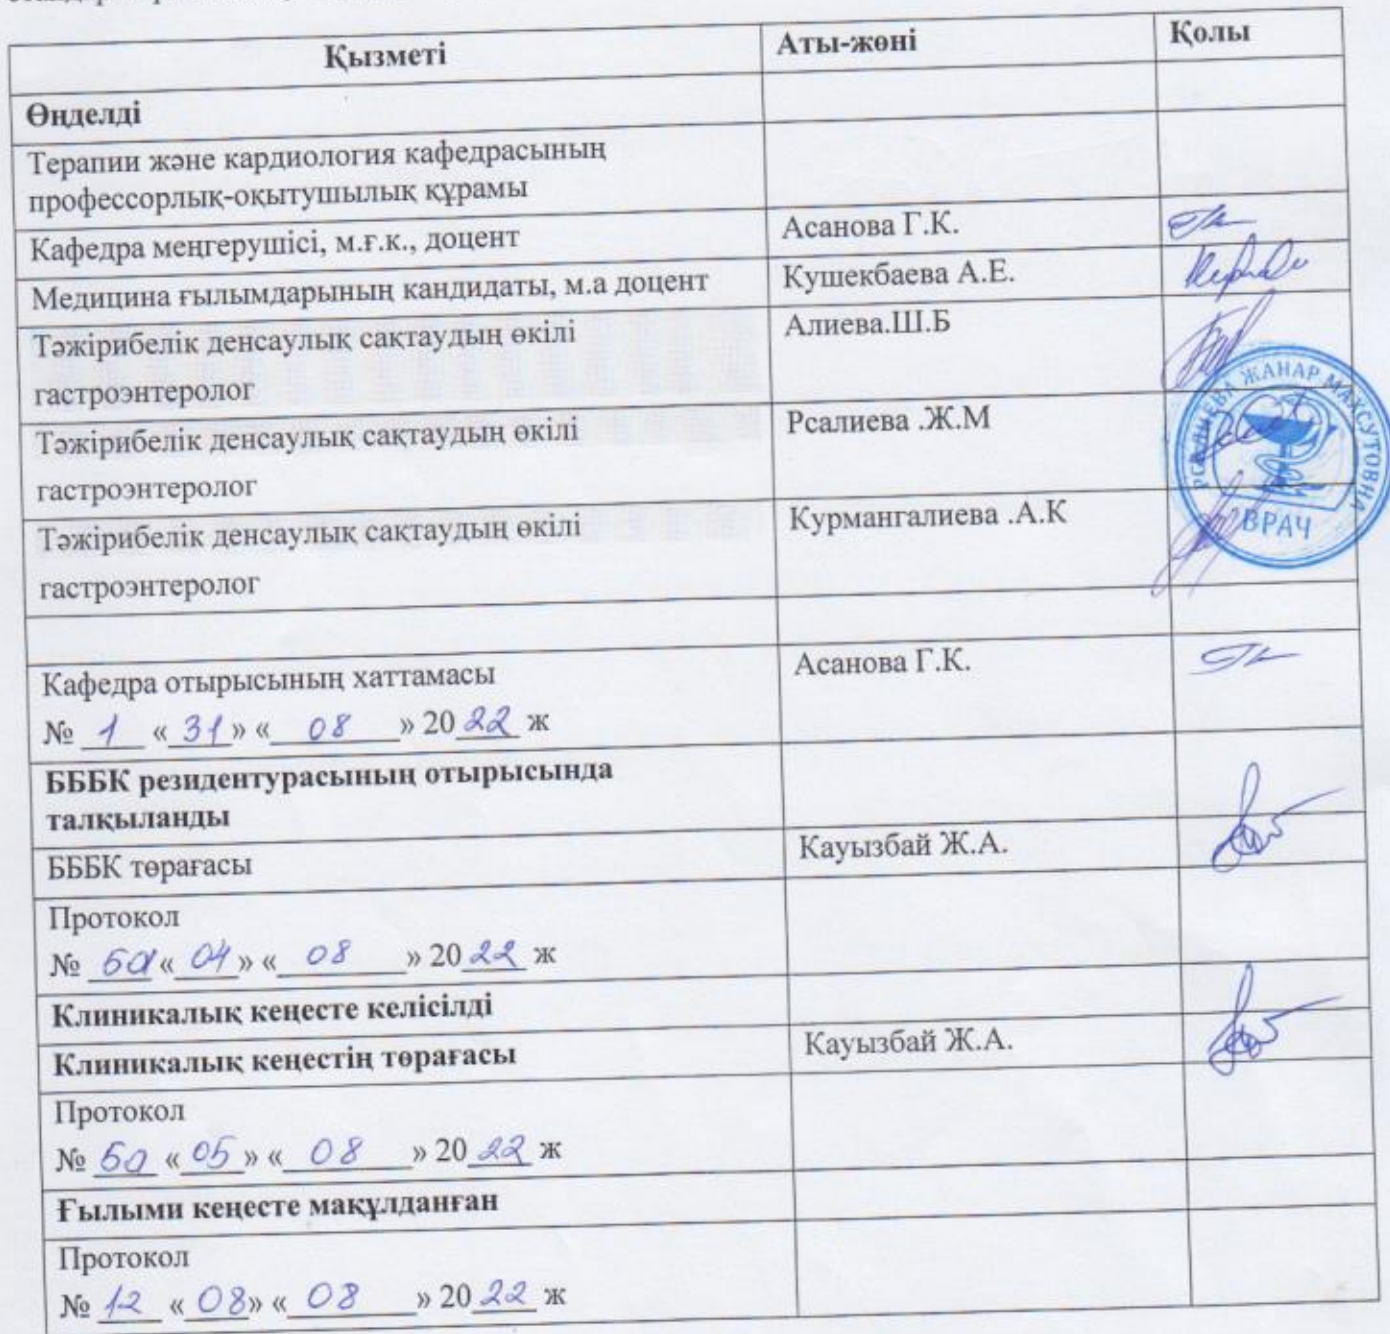 Қызметі Аты-жөні Қолы
Өңделді
Терапии және кардиология кафедрасының
профессорлық-оқытушылық құрамы
Кафедра меңгерушісі, м.ғ.к., доцент Асанова Г.К.
Медицина ғылымдарының кандидаты, м.а доцент Кушекбаева А.Е.
Тәжірибелік денсаулық сақтаудың өкілі Алиева.Ш.Б
гастроэнтеролог
Тәжірибелік денсаулық сақтаудың өкілі Рсалиева .Ж.М
гастроэнтеролог
РСАЛИЕВА ЖАНАР МАХСУТОВНА
ВРАЧ
Тәжірибелік денсаулық сақтаудың өкілі Курмангалиева .А.К
гастроэнтеролог
Кафедра отырысының хаттамасы Асанова Г.К.
№ 1 «31» « 08 » 2022 ж
БББК резидентурасының отырысында
талқыланды
БББК төрағасы Кауызбай Ж.А.
Протокол
№ 6а «04» « 08 » 2022 ж
Клиникалық кеңесте келісілді
Клиникалық кеңестің төрағасы Кауызбай Ж.А.
Протокол
№ 6а «05» « 08 » 2022 ж
Ғылыми кеңесте мақұлданған
Протокол
№ 12 «08» « 08 » 2022 ж